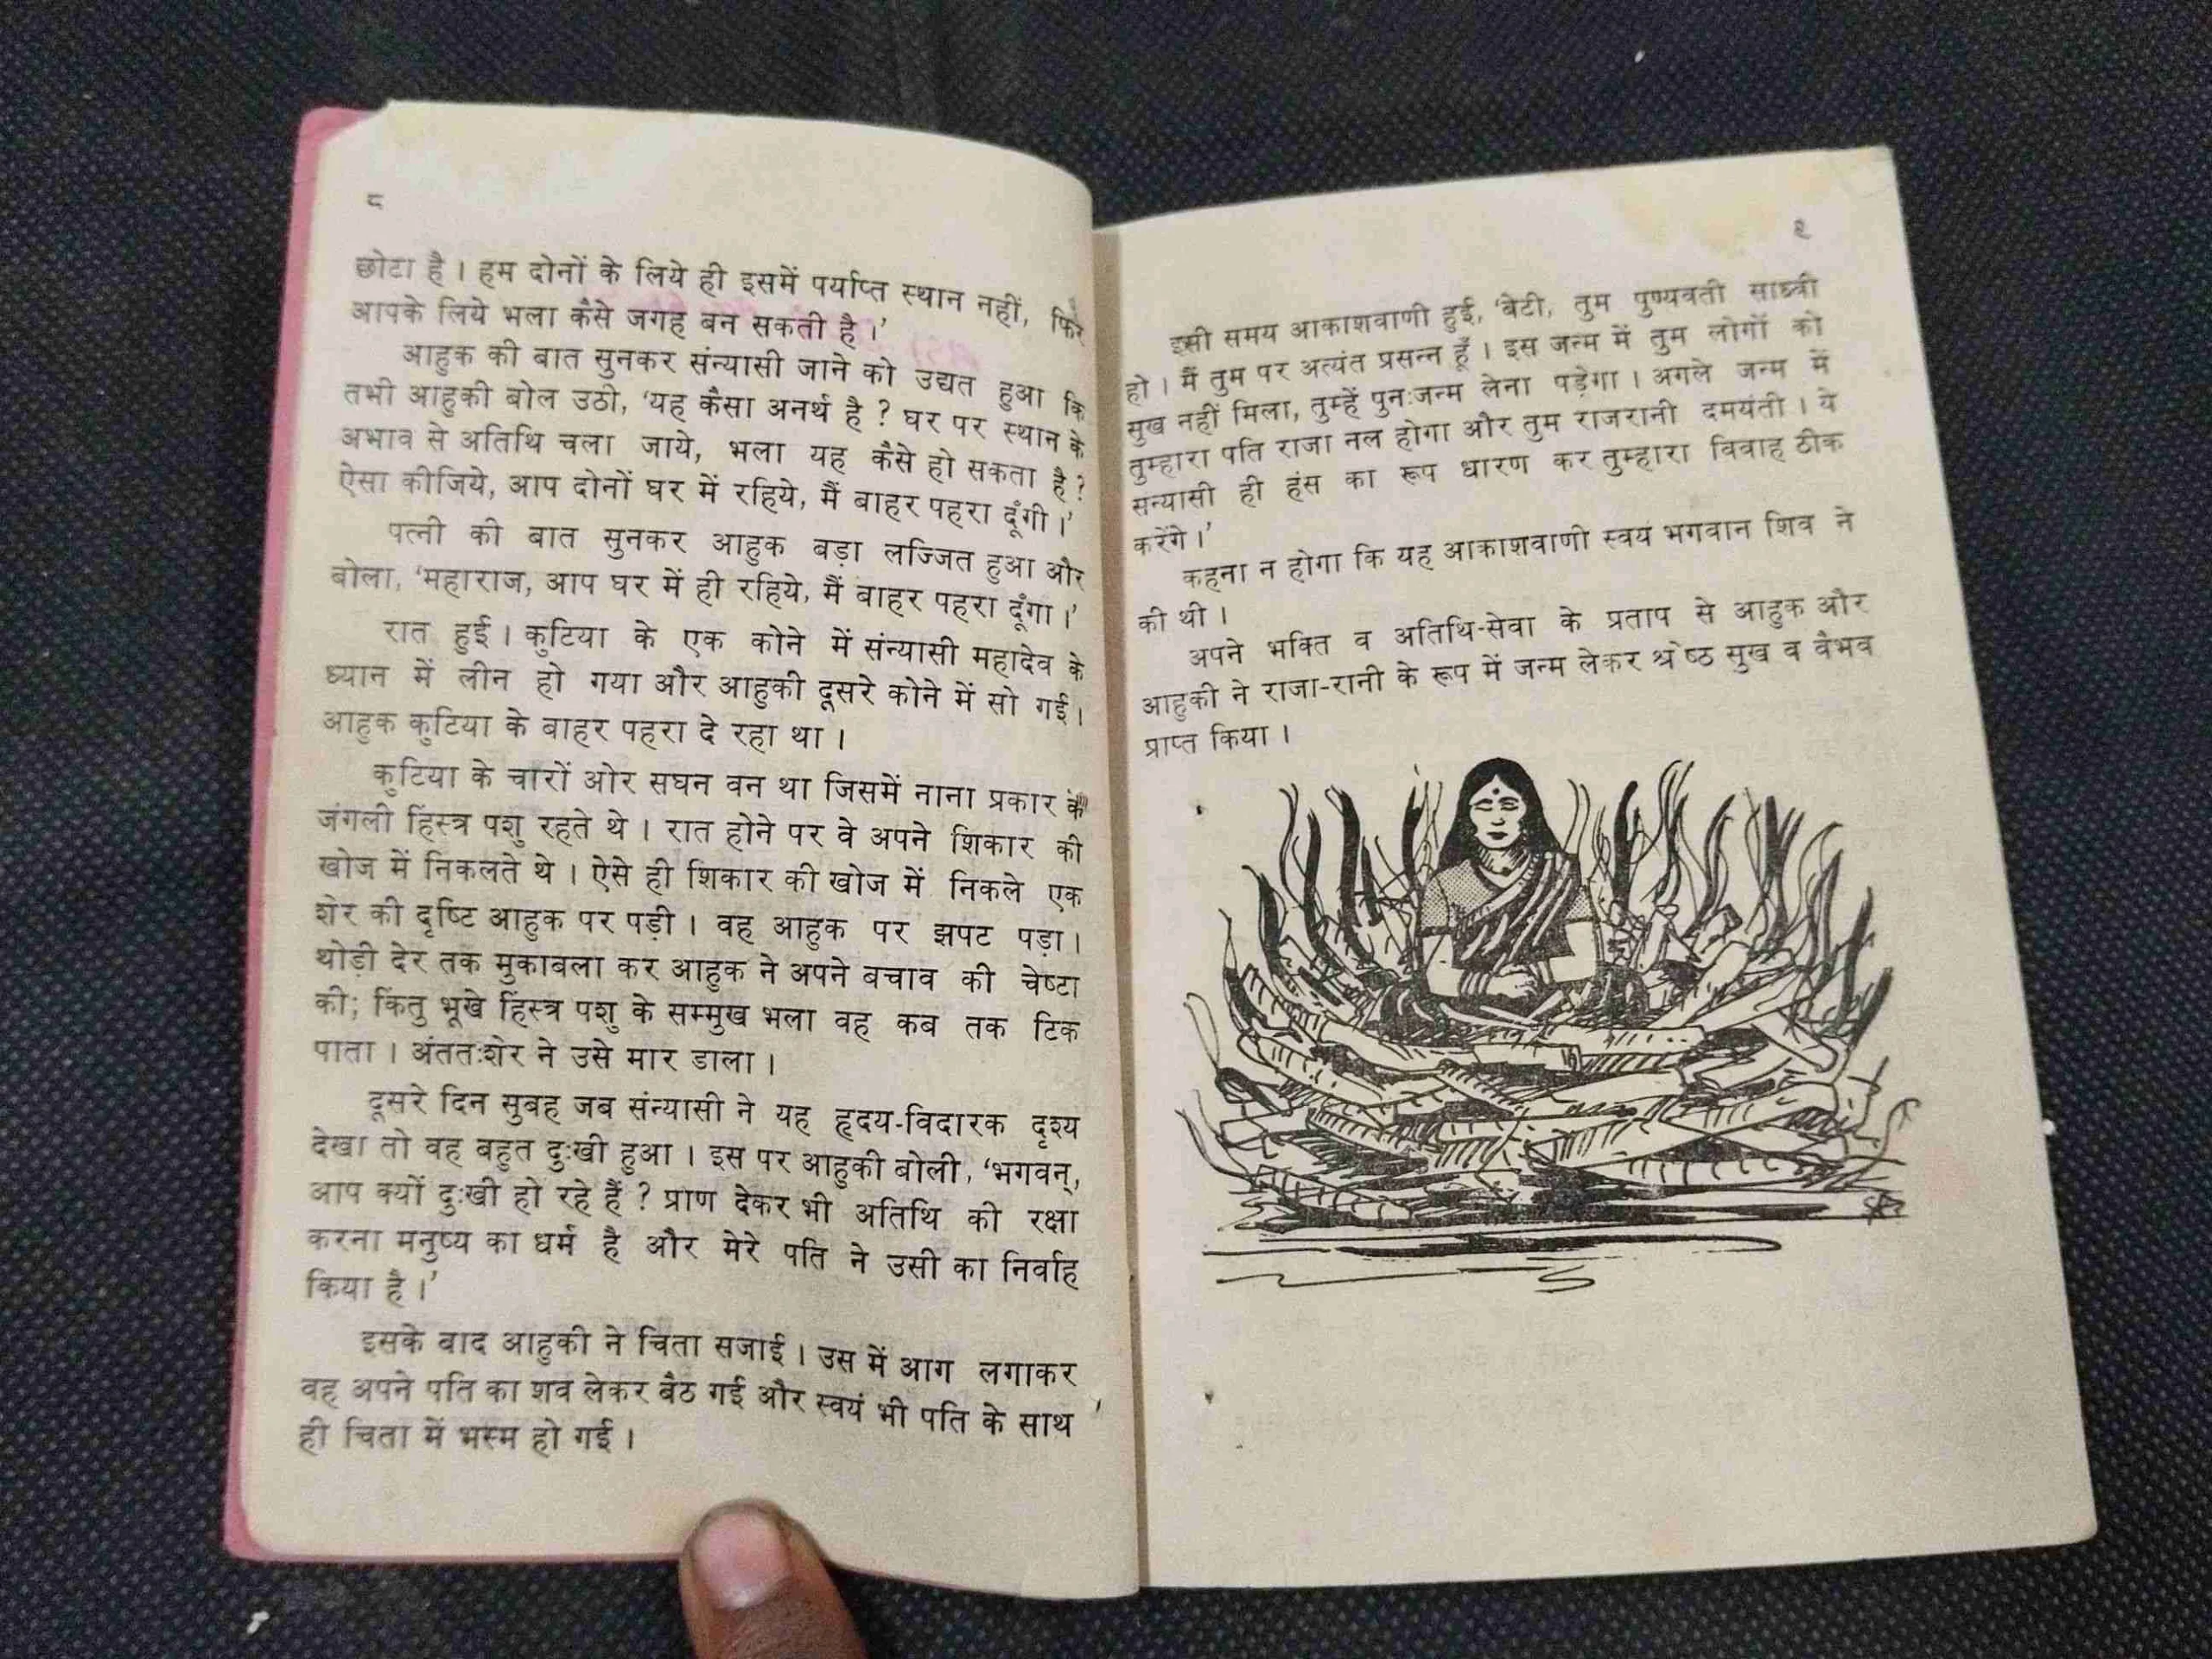 ८
छोटा है । हम दोनों के लिये ही इसमें पर्याप्त स्थान नहीं, फिर
आपके लिये भला कैसे जगह बन सकती है ।’
आहुक की बात सुनकर संन्यासी जाने को उद्यत हुआ कि
तभी आहुकी बोल उठी, ‘यह कैसा अनर्थ है ? घर पर स्थान के
अभाव से अतिथि चला जाये, भला यह कैसे हो सकता है ?
ऐसा कीजिये, आप दोनों घर में रहिये, मैं बाहर पहरा दूँगी ।’
पत्नी की बात सुनकर आहुक बड़ा लज्जित हुआ और
बोला, ‘महाराज, आप घर में ही रहिये, मैं बाहर पहरा दूँगा ।’
रात हुई । कुटिया के एक कोने में संन्यासी महादेव के
ध्यान में लीन हो गया और आहुकी दूसरे कोने में सो गई ।
आहुक कुटिया के बाहर पहरा दे रहा था ।
कुटिया के चारों ओर सघन वन था जिसमें नाना प्रकार के
जंगली हिंस्त्र पशु रहते थे । रात होने पर वे अपने शिकार की
खोज में निकलते थे । ऐसे ही शिकार की खोज में निकले एक
शेर की दृष्टि आहुक पर पड़ी । वह आहुक पर झपट पड़ा ।
थोड़ी देर तक मुकाबला कर आहुक ने अपने बचाव की चेष्टा
की; किंतु भूखे हिंस्त्र पशु के सम्मुख भला वह कब तक टिक
पाता । अंततःशेर ने उसे मार डाला ।
दूसरे दिन सुबह जब संन्यासी ने यह हृदय-विदारक दृश्य
देखा तो वह बहुत दुःखी हुआ । इस पर आहुकी बोली, ‘भगवन्,
आप क्यों दुःखी हो रहे हैं ? प्राण देकर भी अतिथि की रक्षा
करना मनुष्य का धर्म है और मेरे पति ने उसी का निर्वाह
किया है ।’
इसके बाद आहुकी ने चिता सजाई । उस में आग लगाकर
वह अपने पति का शव लेकर बैठ गई और स्वयं भी पति के साथ
ही चिता में भस्म हो गई ।
९
इसी समय आकाशवाणी हुई, ‘बेटी, तुम पुण्यवती साध्वी
हो । मैं तुम पर अत्यंत प्रसन्न हूँ । इस जन्म में तुम लोगों को
सुख नहीं मिला, तुम्हें पुनःजन्म लेना पड़ेगा । अगले जन्म में
तुम्हारा पति राजा नल होगा और तुम राजरानी दमयंती । ये
सन्यासी ही हंस का रूप धारण कर तुम्हारा विवाह ठीक
करेंगे ।’
कहना न होगा कि यह आकाशवाणी स्वयं भगवान शिव ने
की थी ।
अपने भक्ति व अतिथि-सेवा के प्रताप से आहुक और
आहुकी ने राजा-रानी के रूप में जन्म लेकर श्रेष्ठ सुख व वैभव
प्राप्त किया ।